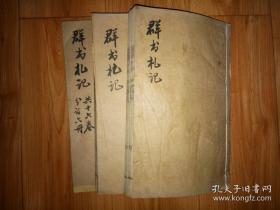 群书札记
群书札记
群书札记
共十六卷
分订六册
孔夫子旧书网